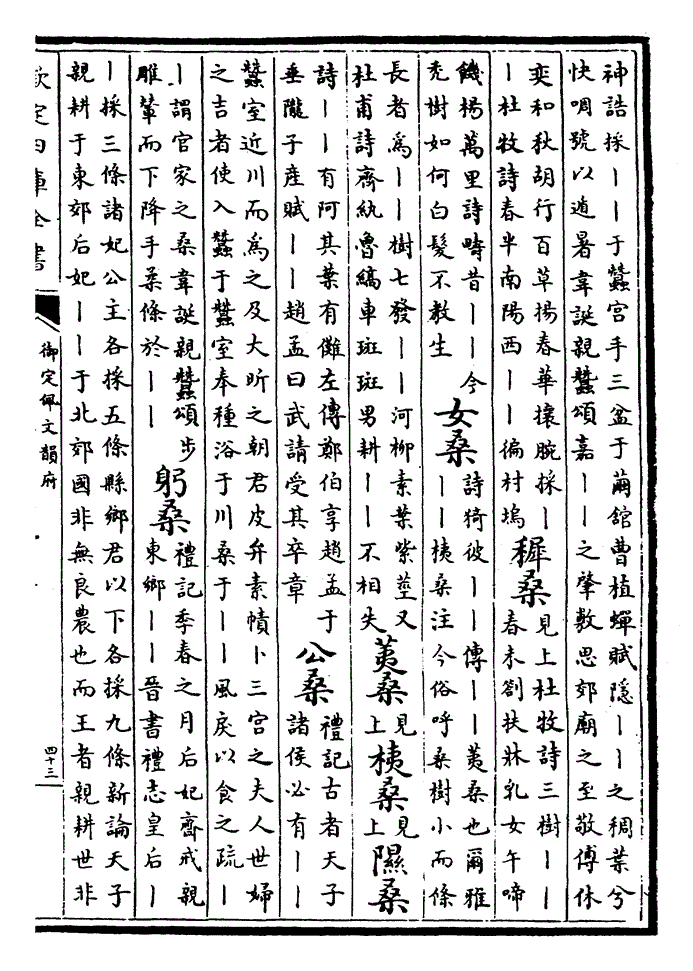 神誥採丨丨于蠶宫手三盆于繭舘曹植蟬賦隱丨丨之稠葉兮
快啁號以遁暑韋誕親蠶頌嘉丨丨之肇敷思郊廟之至敬傅休
奕和秋胡行百草揚春華攘腕採丨
丨杜牧詩春半南陽西丨丨徧村塢
穉桑
見上杜牧詩三樹丨丨
春未劄扶牀乳女午啼
饑楊萬里詩疇昔丨丨今
禿樹如何白髮不教生
女桑
詩猗彼丨丨傳丨丨荑桑也爾雅
丨丨桋桑注今俗呼桑樹小而條
長者為丨丨樹七發丨丨河柳素葉紫莖又
杜甫詩齊紈魯縞車斑斑男耕丨丨不相失
荑桑
見上
桋桑
見上
隰桑
詩丨丨有阿其葉有儺左傳鄭伯享趙孟于
垂隴子産賦丨丨趙孟曰武請受其卒章
公桑
禮記古者天子
諸侯必有丨丨
蠶室近川而為之及大昕之朝君皮弁素幘卜三宫之夫人世婦
之吉者使入蠶于蠶室奉種浴于川桑于丨丨風戾以食之疏丨
丨謂官家之桑韋誕親蠶頌步
雕輦而下降手柔條於丨丨
躬桑
禮記季春之月后妃齊戒親
東鄉丨丨晉書禮志皇后丨
丨採三條諸妃公主各採五條縣鄉君以下各採九條新論天子
親耕于東郊后妃丨丨于北郊國非無良農也而王者親耕世非
欽定四庫全書
御定佩文韻府
四十三